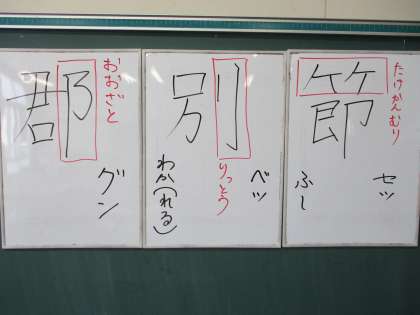 節
たけかんむり
セツ
ふし
別
りっとう
ベツ
わか(れる)
郡
おおざと
グン